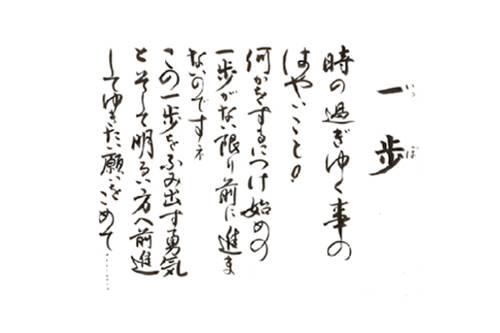 一歩
いっぽ
時の過ぎゆく事の
はやいこと!
何かをするにつけ始めの
一歩がない限り前に進ま
ないのですネ
この一歩をふみ出す勇気
とそして明るい方へ前進
してゆきたい願いを
こめて……